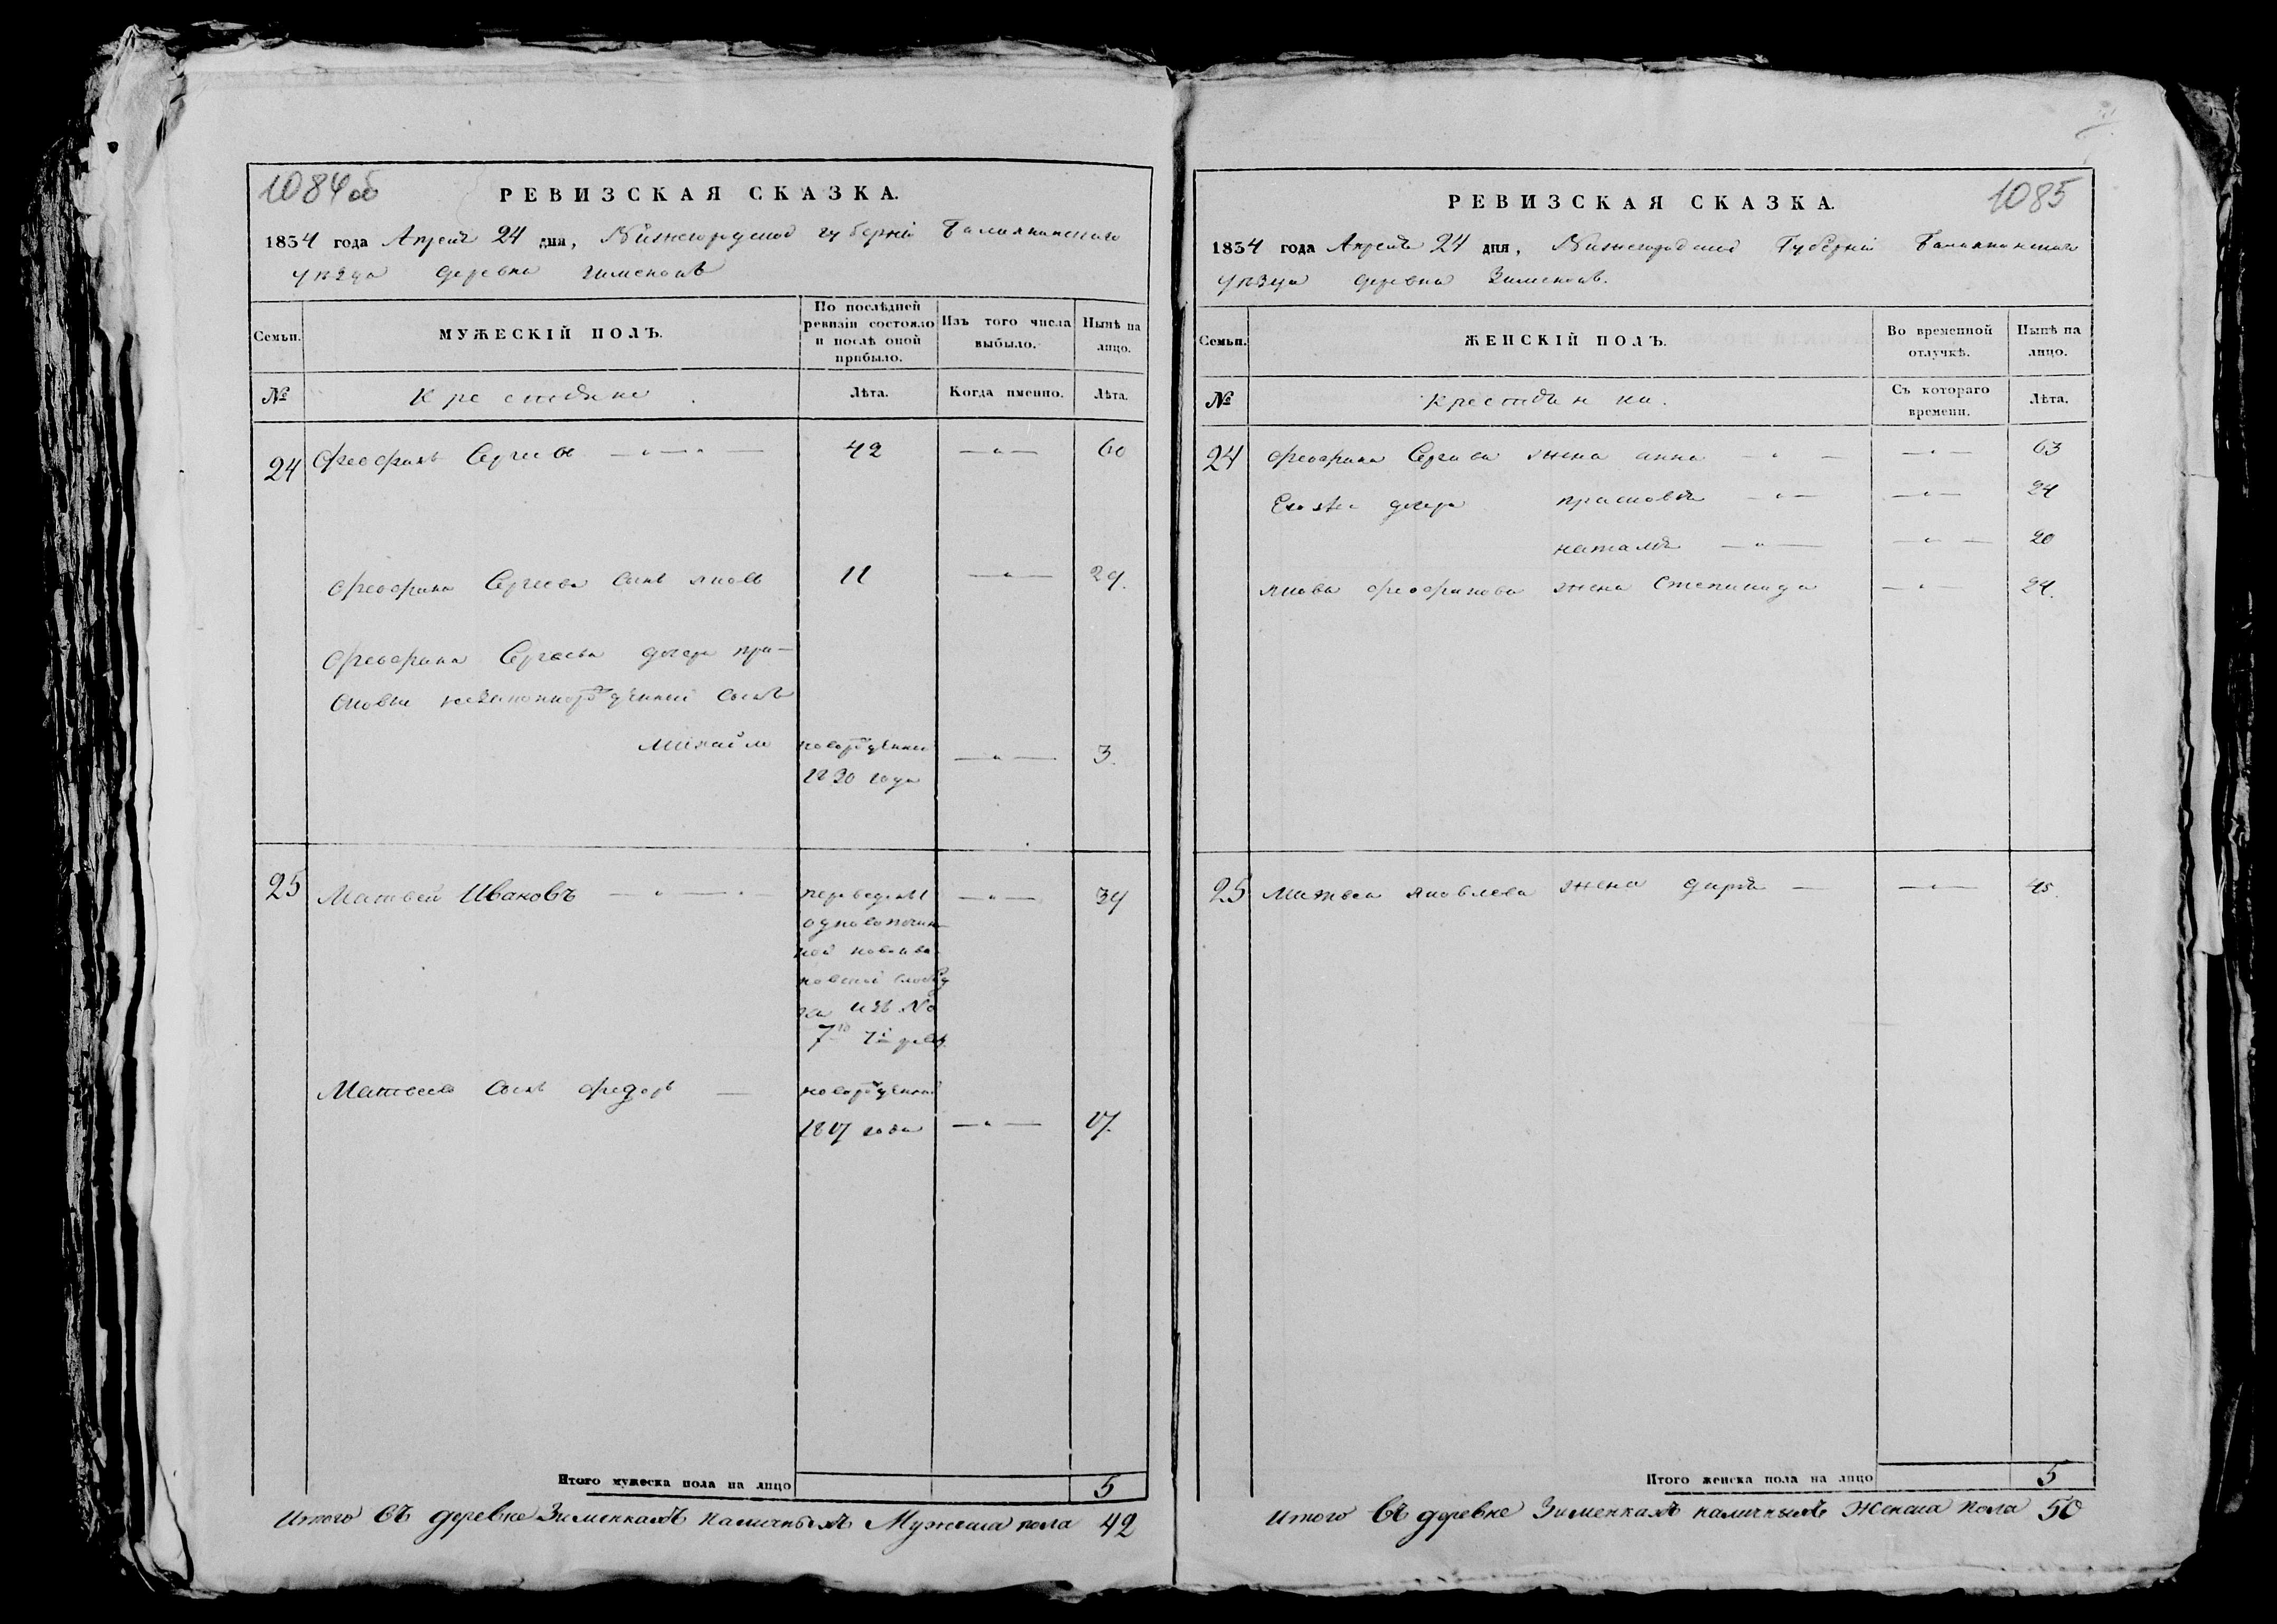 1084 об
РЕВИЗСКАЯ СКАЗКА.
1834 года Апреля 24 дня, Нижегородской губерніи Балахнинскаго
уѣзда деревни Зименокъ
Семьи.
МУЖЕСКІЙ ПОЛЪ.
По послѣдней
ревизіи состояло
и послѣ оной
прибыло.
Изъ того числа
выбыло.
Нынѣ на
лицо.
№
Крестьяне
Лѣта.
Когда именно.
Лѣта.
24 Феофанъ Сергеевъ 42 60
Феофана Сергеева сынъ Яковъ 11 29.
Феофана Сергеева дочери Пра-
сковьи незаконнорожденный сынъ
Михайло новорожденный 3.
1830 года
25 Матвей Ивановъ переведенъ 34
одновотчин-
ной
слобод
изъ №
7го 7й ревиз.
Матвеевъ сынъ Федоръ новорожденный
1817 года 17.
Итого мужеска пола на лицо 5
Итого въ деревне Зименкахъ наличныхъ Мужеска пола 42
1085
РЕВИЗСКАЯ СКАЗКА.
1834 года Апреля 24 дня, Нижегородской Губерніи Балахнинскаго
уѣзда деревни Зименокъ.
Семьи.
ЖЕНСКІЙ ПОЛЪ.
Во временной
отлучкѣ.
Нынѣ на
лицо.
№
Крестьянки.
Съ котораго
времени.
Лѣта.
24 Феофана Сергеева жена Анна 63
Ево же дочери Прасковья 24
Наталья 20
Якова Феофанова жена Степанида 29.
25 Матвея Яковлева жена Дарья 45.
Итого женска пола на лицо 5
Итого въ деревне Зименкахъ наличныхъ Женска пола 50